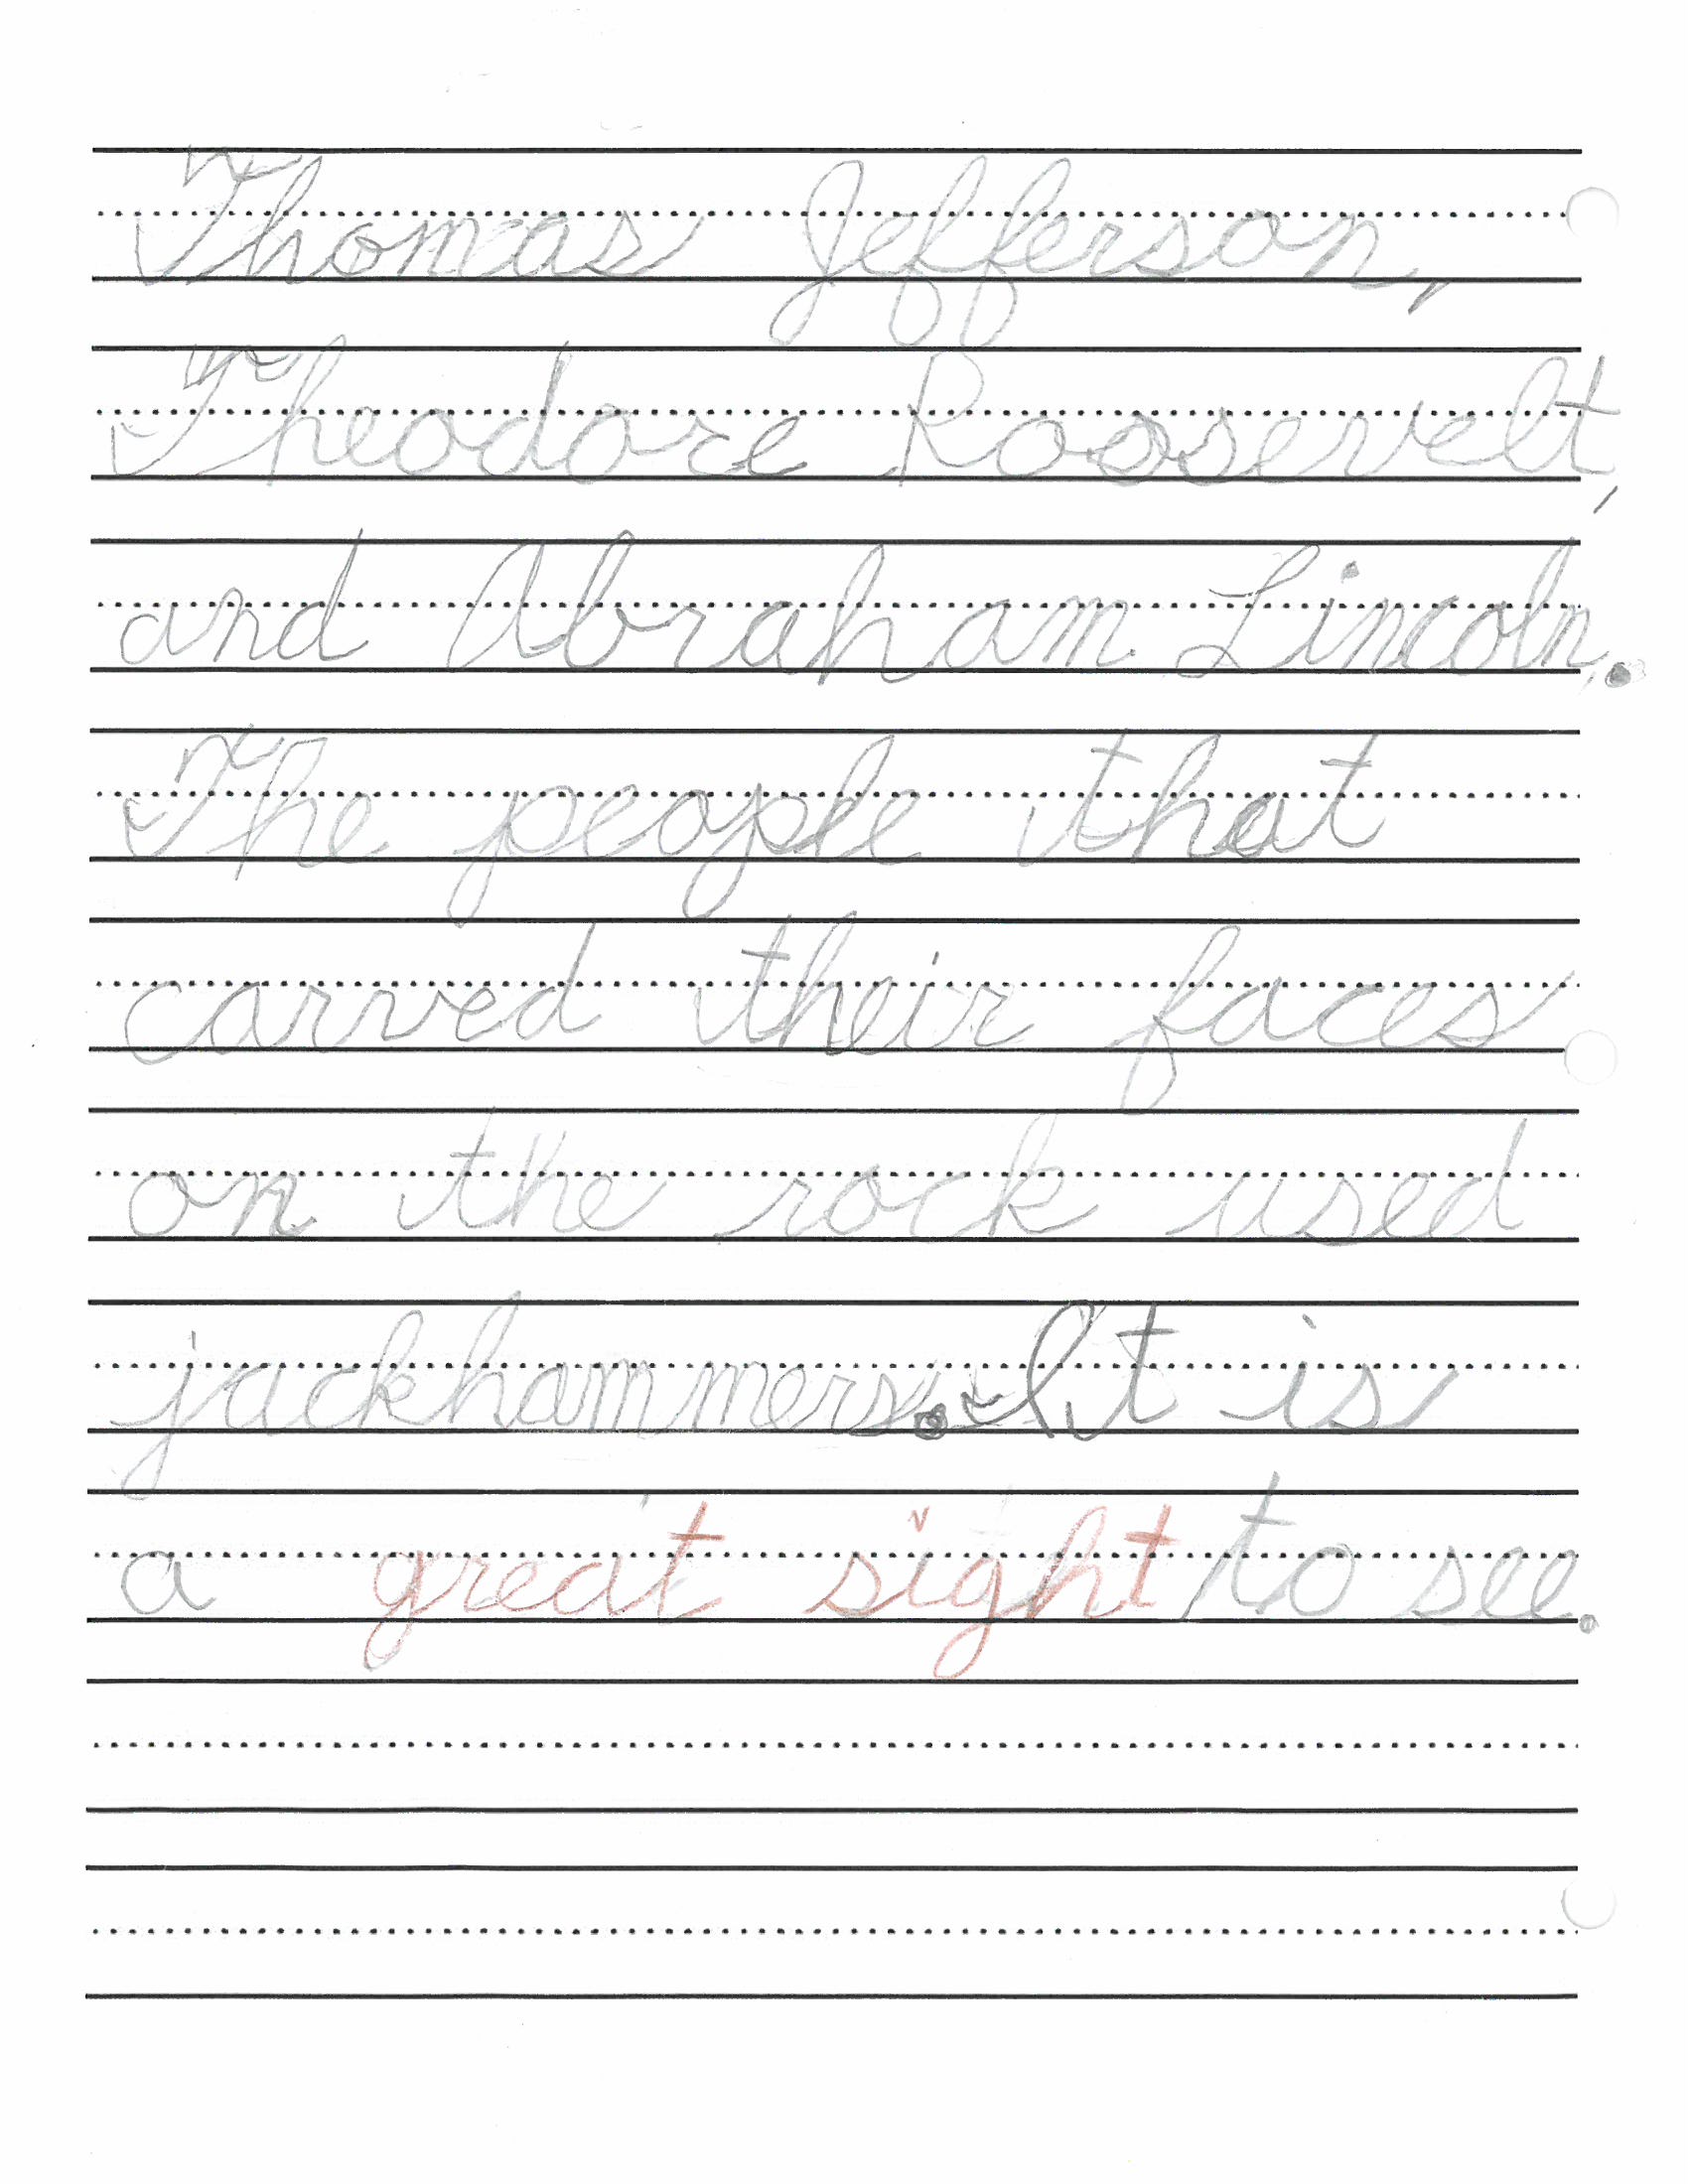 Thomas Jefferson,
Theodore Roosevelt,
and Abraham Lincoln.
The people that
carved their faces
on the rock used
jackhammers. It is
a great sight to see.